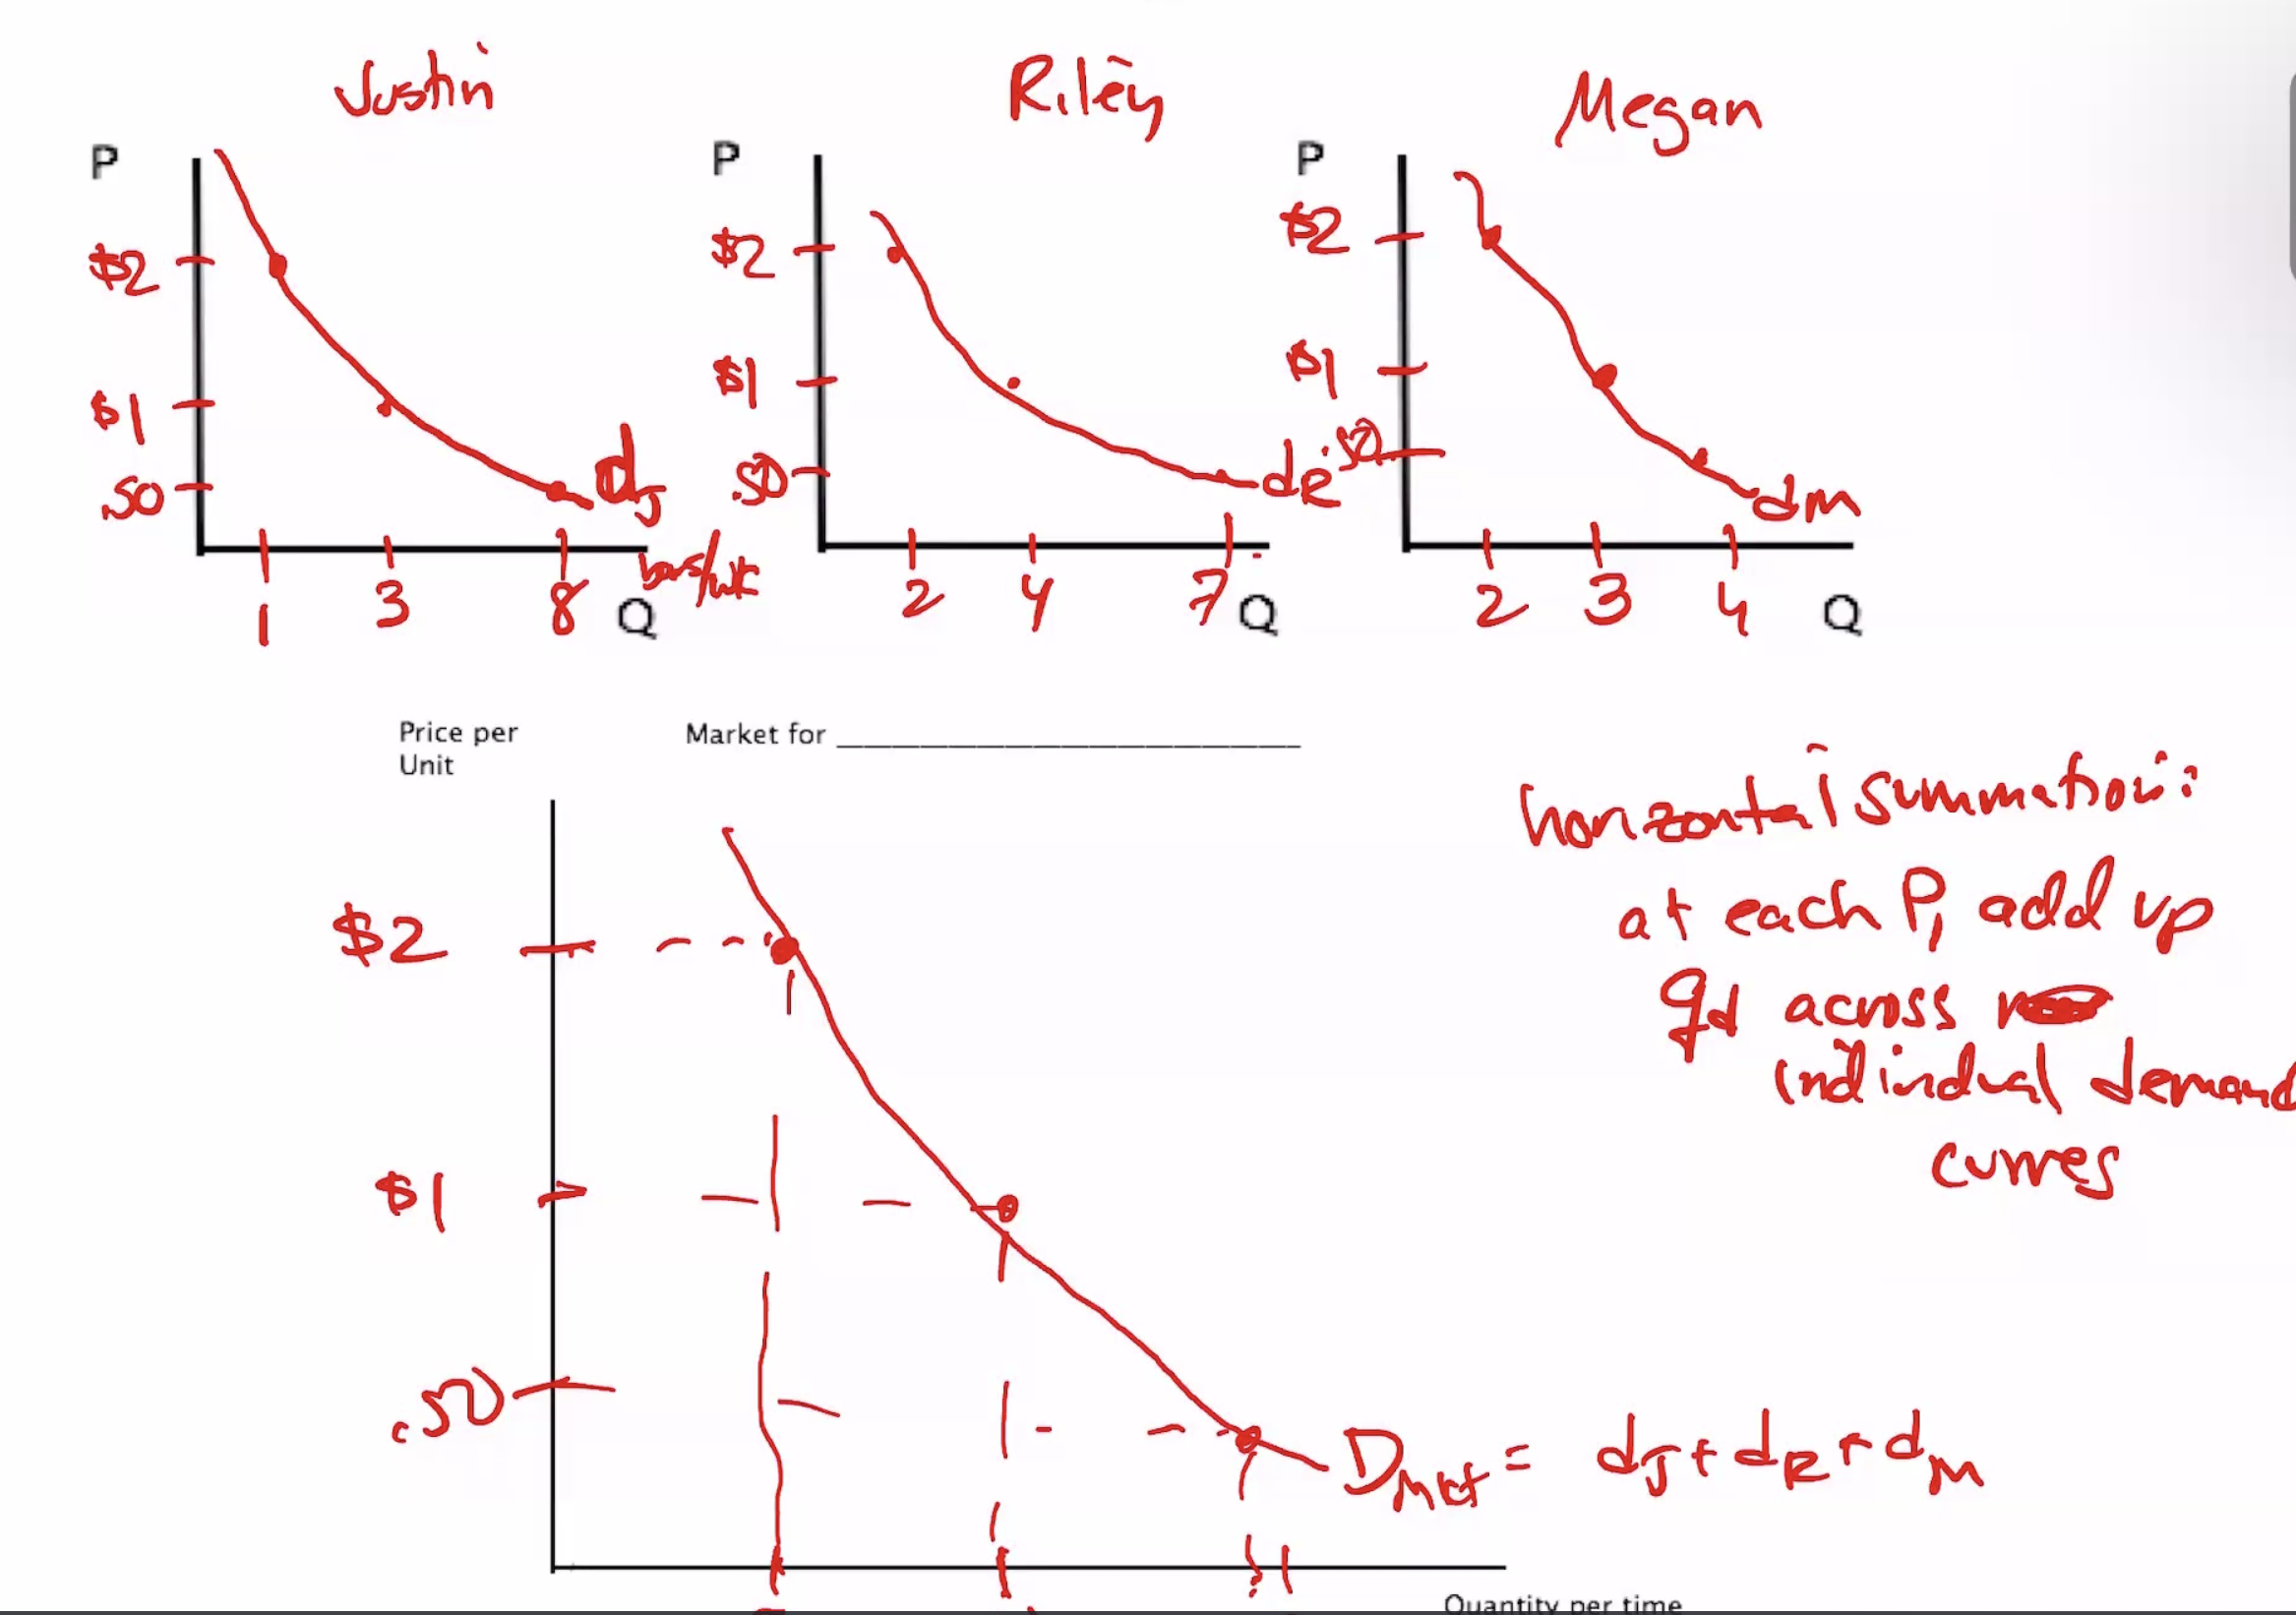 Justin
Riley
Megan
P
P
P
$2
$2
$2
$1
$1
$1
.50
.50
.50
dJ
dR
dM
bars/wk
1 3 8 Q
2 4 7 Q
2 3 4 Q
Price per
Unit
Market for ____________________
horizontal summation:
at each P, add up
qd across
indindual demand
curves
$2
$1
.50
DMKt = dJ + dR + dM
Quantity per time